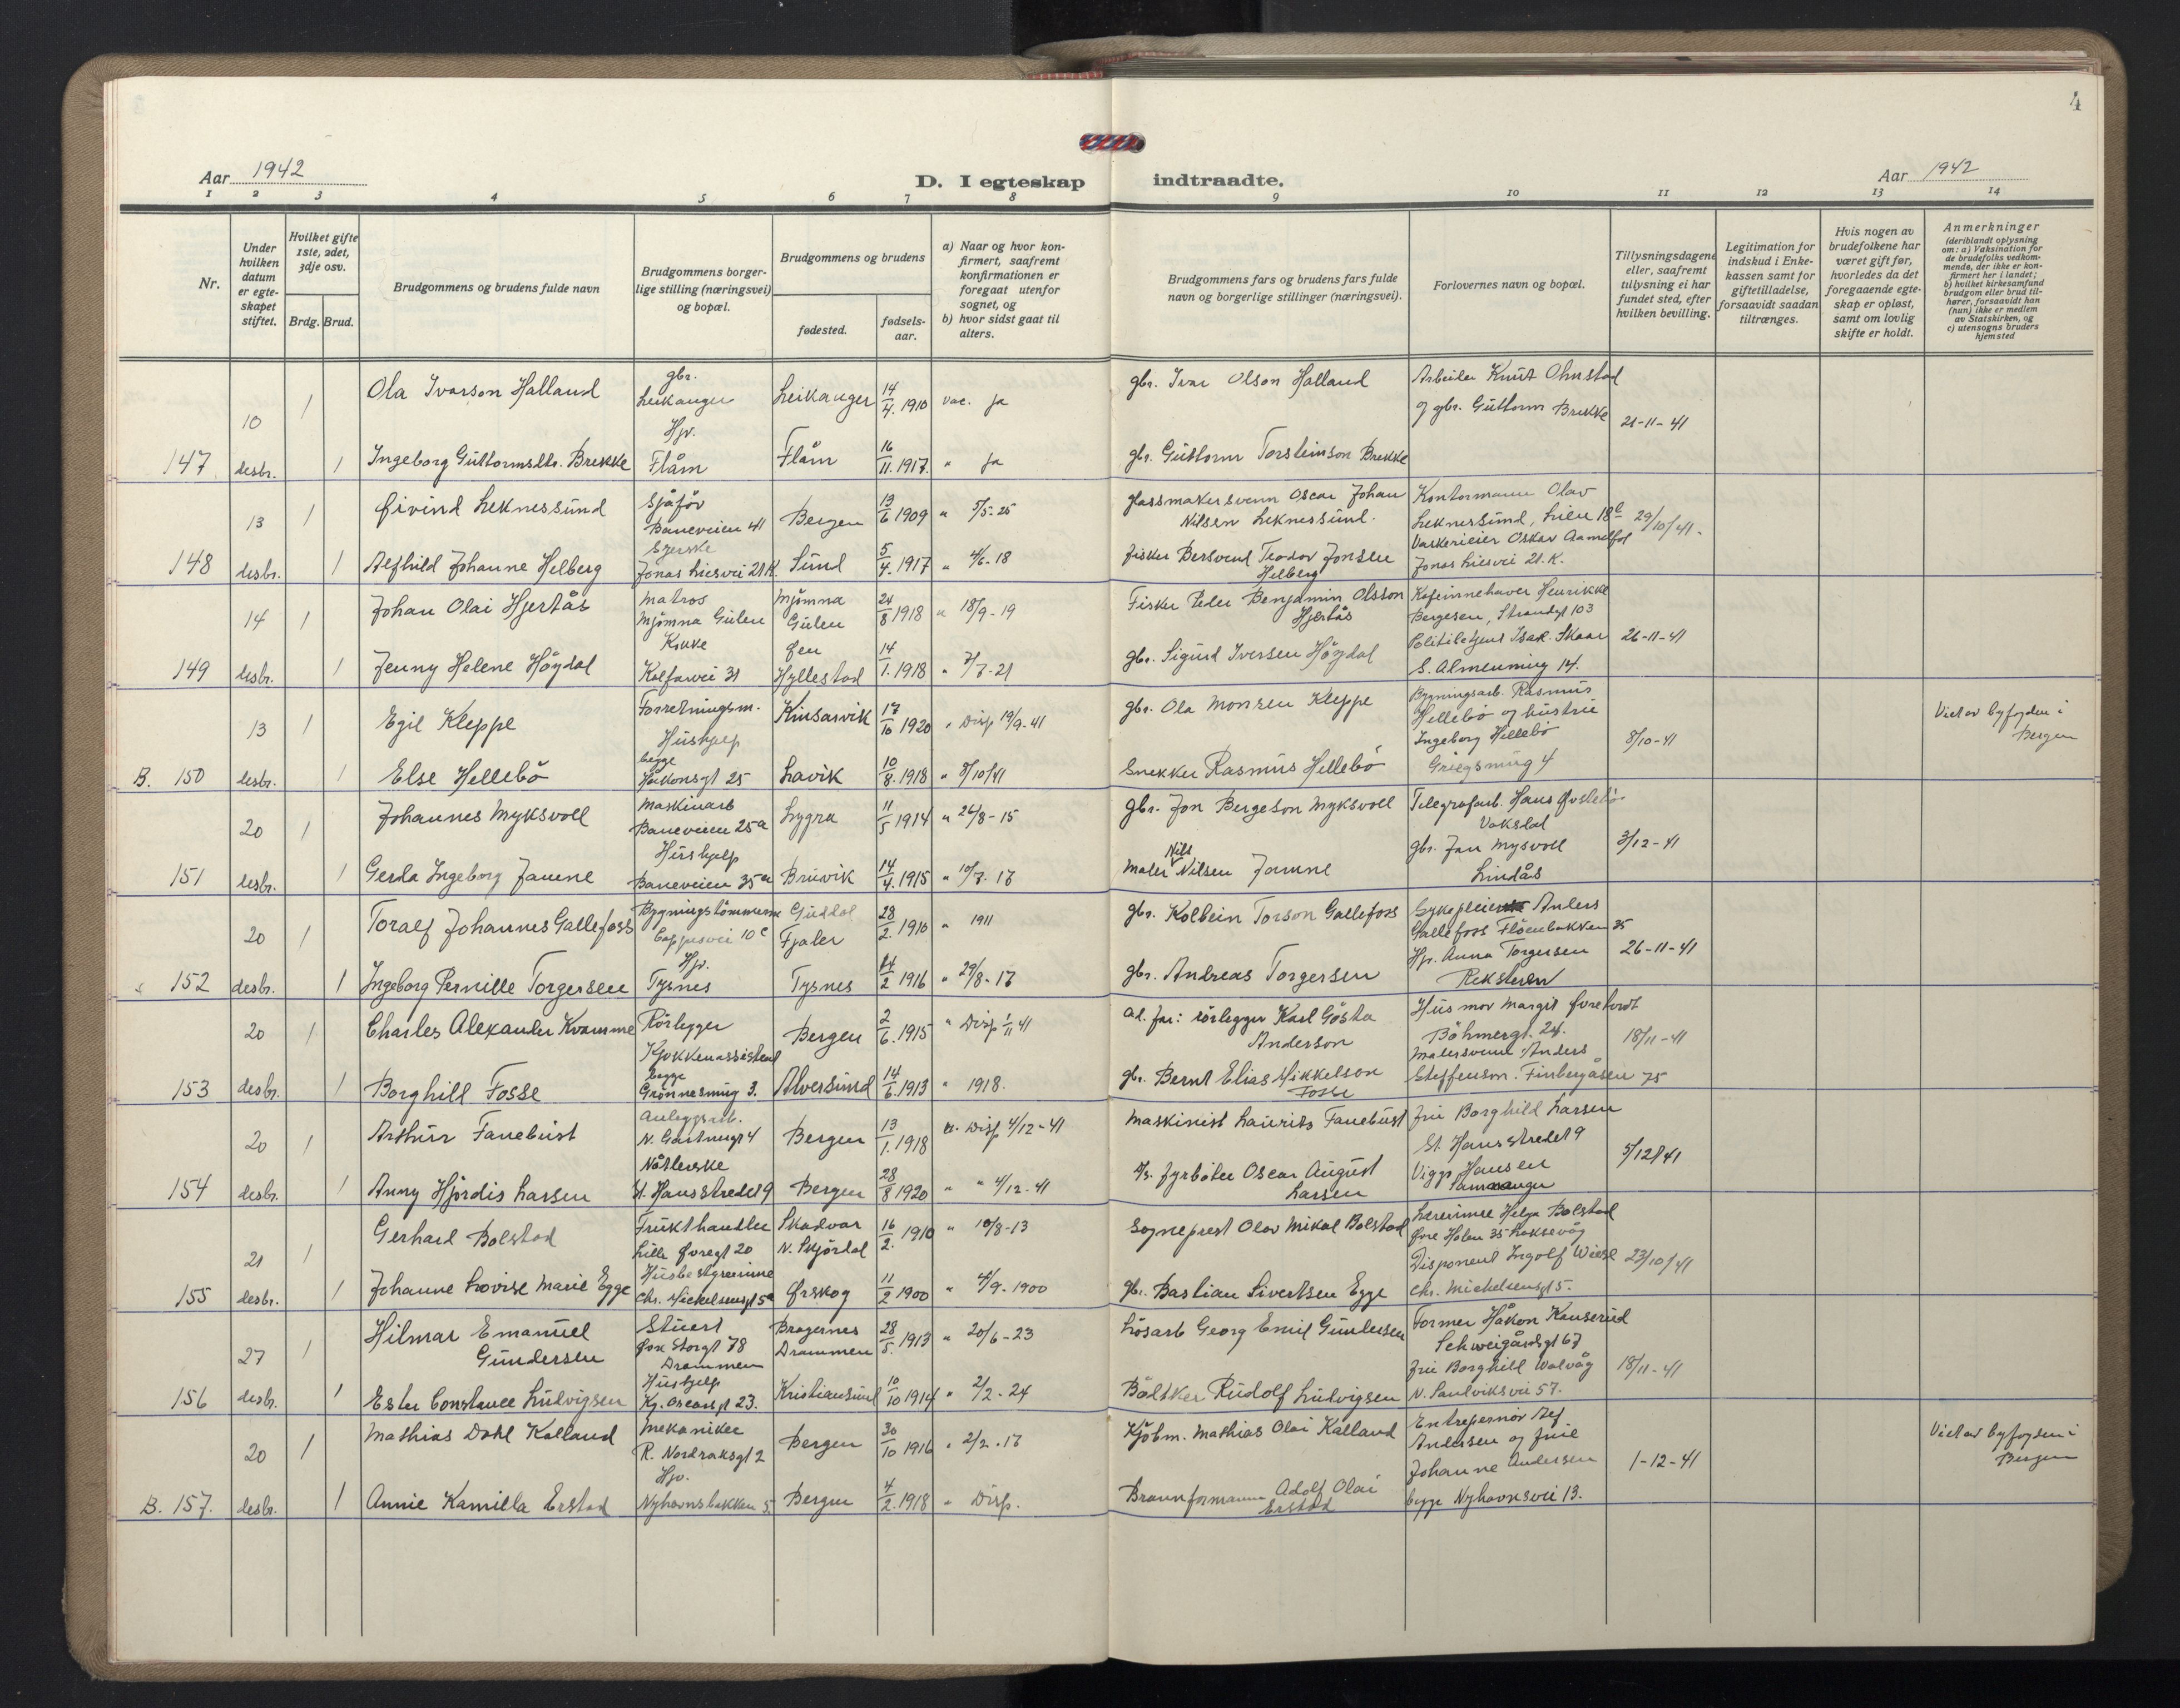 4
Aar 1942
D. I egteskap
indtraadte.
Aar 1942
1 2 3 4 5 6 7 8 9 10 11 12 13 14
Nr.
Under hvilken datum er egteskapet stiftet.
Hvilket gifte 1ste, 2det, 3dje osv.
Brdg. Brud.
Brudgommens og brudens fulde navn
Brudgommens borgerlige stilling (næringsvei) og bopæl.
Brudgommens og brudens
fødested.
fødselsaar.
a) Naar og hvor konfirmert, saafremt konfirmationen er foregaat utenfor sognet, og
b) hvor sidst gaat til alters.
Brudgommens fars og brudens fars fulde navn og borgerlige stillinger (næringsvei).
Forlovernes navn og bopæl.
Tillysningsdagene eller, saafremt tillysning ei har fundet sted, efter hvilken bevilling.
Legitimation for indskud i Enkekassen samt for giftetilladelse, forsaavidt saadan tiltrænges.
Hvis nogen av brudefolkene har været gift før, hvorledes da det foregaaende egteskap er opløst, samt om lovlig skifte er holdt.
Anmerkninger
(deriblandt oplysning om: a) Vaksination for de brudefolks vedkommende, der ikke er konfirmert her i landet; b) hvilket kirkesamfund brudgom eller brud tilhører, forsaavidt han (hun) ikke er medlem av Statskirken, og c) utensogns bruders hjemsted
147 10 desbr. 1 1
Ola Ivarson Halland gbr. Leikanger Leikanger 14/4. 1910 vac. ja
gbr. Ivar Olson Halland Arbeider Knut Ohnstad
og gbr. Guttorm Brekke 21-11-41
Ingeborg Guttormsdtr. Brekke Hjv. Flåm Flåm 16/11. 1917. " ja
gbr. Guttorm Torsteinson Brekke
148 13 desbr. 1 1
Øivind Leknessund Sjåfør Baneveien 41 Bergen 13/6 1909 " 5/5-25
glassmakersvenn Oscar Johan Nilsen Leknessund. Kontormann Olav Leknessund, Lien 18c 29/10/41.
Alfhild Johanne Helberg Syerske Jonas Liesvei 21 K. Sund 5/4. 1917 " 4/6-18
fisker Bersvend Teodor Jonsen Helberg Vaskerieier Oskar Jonas Liesvei 21. K.
149 14 desbr. 1 1
Johan Olai Hjertås matros Mjømna Gulen Mjømna Gulen 24/8 1918 " 18/9-19
Fisker Peder Benjamin Olsson Hjertås Kafeinnehaver Henrikke Bergesen, Strandgt 103
Jenny Helene Høydal Kokke Kalfarvei 31 Øen Hyllestad 14/1. 1918 " 7/7-21
gbr. Sigurd Iversen Høydal Politibetjent Isak Skaar S. Almenning 14. 26-11-41
B. 150 13 desbr. 1 1
Egil Kleppe Forretningsm. Kinsarvik 17/10 1920 " Disp 19/9-41
gbr. Ola Monsen Kleppe Bygningsarb. Rasmus Hellebø og hustru Ingeborg Hellebø 8/10-41 Viet av byfogden i Bergen
Else Hellebø Hushjelp begge Håkonsgt 25 Lavik 10/8. 1918 " 8/10/41
Snekker Rasmus Hellebø Griegsmug 4
151 20 desbr. 1 1
Johannes Myksvoll Maskinarb Baneveien 25a Lygra 11/5 1914 " 24/8-15
gbr. Jon Bergeson Myksvoll Telegrafarb. Hans Vaksdal
Gerda Ingeborg Jamne Hushjelp Baneveien 35a Bruvik 14/4. 1915 " 10/7-17
Maler Nils Nilsen Jamne gbr. Jan Mysvoll Lindås 3/12-41
152 20 desbr. 1 1
Toralf Johannes Gallefoss Bygningstømmerm Cappesvei 10c Guddal Fjaler 28/2. 1910 " 1911
gbr. Kolbein Torson Gallefoss Sykepleier Anders Gallefoss Fløenbakken 35
Ingeborg Pernille Torgersen Hjv. Tysnes Tysnes 14/2 1916 " 29/8-17
gbr. Andreas Torgersen Hjv. Anna Torgersen Reksteren 26-11-41
153 20 desbr. 1 1
Charles Alexander Kvamme Rørlegger Bergen 2/6. 1915 " Disp 1/11 41
ad. far: rørlegger Karl Gösta Anderson Husmor Margit Bøhmergt. 24. 18/11-41
Borghild Fosse Kjøkkenassistent begge Grønnesmug 3. Alversund 14/6. 1913 " 1918.
gbr. Bernt Elias Mikkelson Fosse Malersvenn Anders Steffenson. Finbergåsen 75
154 20 desbr. 1 1
Arthur Fanebust Anleggsarb. N. Gartnergt 4 Bergen 13/1. 1918 a. Disp 4/12-41
Maskinist Laurits Fanebust fru Borghild Larsen St. Hansstredet 9
Anny Hjørdis Larsen St. Hansstredet 9 Bergen 28/8 1920 " " 4/12-41
fyrbøter Oscar August Larsen Viggo Hansen Samnanger 5/12/41
155 21 desbr. 1 1
Gerhard Bolstad Frukthandler Lille Øvregt 20 Skodvar N. Skjørdal 16/2. 1910 " 10/8-13
Sogneprest Olav Mikal Bolstad Lærerinne Helga Bolstad Øvre Holen 35 Laksevåg
Johanne Lovise Marie Egge Husbestyrerinne Chr. Mickelsensgt 5a Ørskog 11/2 1900 " 4/9-1900
gbr. Bastian Sivertsen Egge Disponent Ingolf Wiese Chr. Mickelsensgt 5. 23/10/41
156 27 desbr. 1 1
Hilmar Emanuel Gundersen Stuert Øvre Storgt 78 Drammen Bragernes Drammen 28/5. 1913 " 20/6-23
Løsarb Georg Emil Gundersen Former Håkon Kauserud Schweigårdsgt 67
Ester Constance Ludvigsen Hushjelp Kg. Oscarsgt 23. Kristiansund 10/10 1914 " 2/2-24
Bødtker Rudolf Ludvigsen fru Borghild Walvåg N. Sandviksvei 57. 18/11-41
B. 157. 20 desbr. 1 1
Mathias Dahl Kalland mekaniker R. Nordraksgt 2 Bergen 30/10 1916 " 2/2-17
Kjøbm. Mathias Olai Kalland Entrepernør Alf Andersen og frue Johanne Andersen 1-12-41 Viet av byfogden i Bergen
Annie Kamilla Erstad Hjv. Nyhavnsbakken 5. Bergen 4/2. 1918 " Disp.
Brannformann Adolf Olai Erstad begge Nyhavnsvei 13.